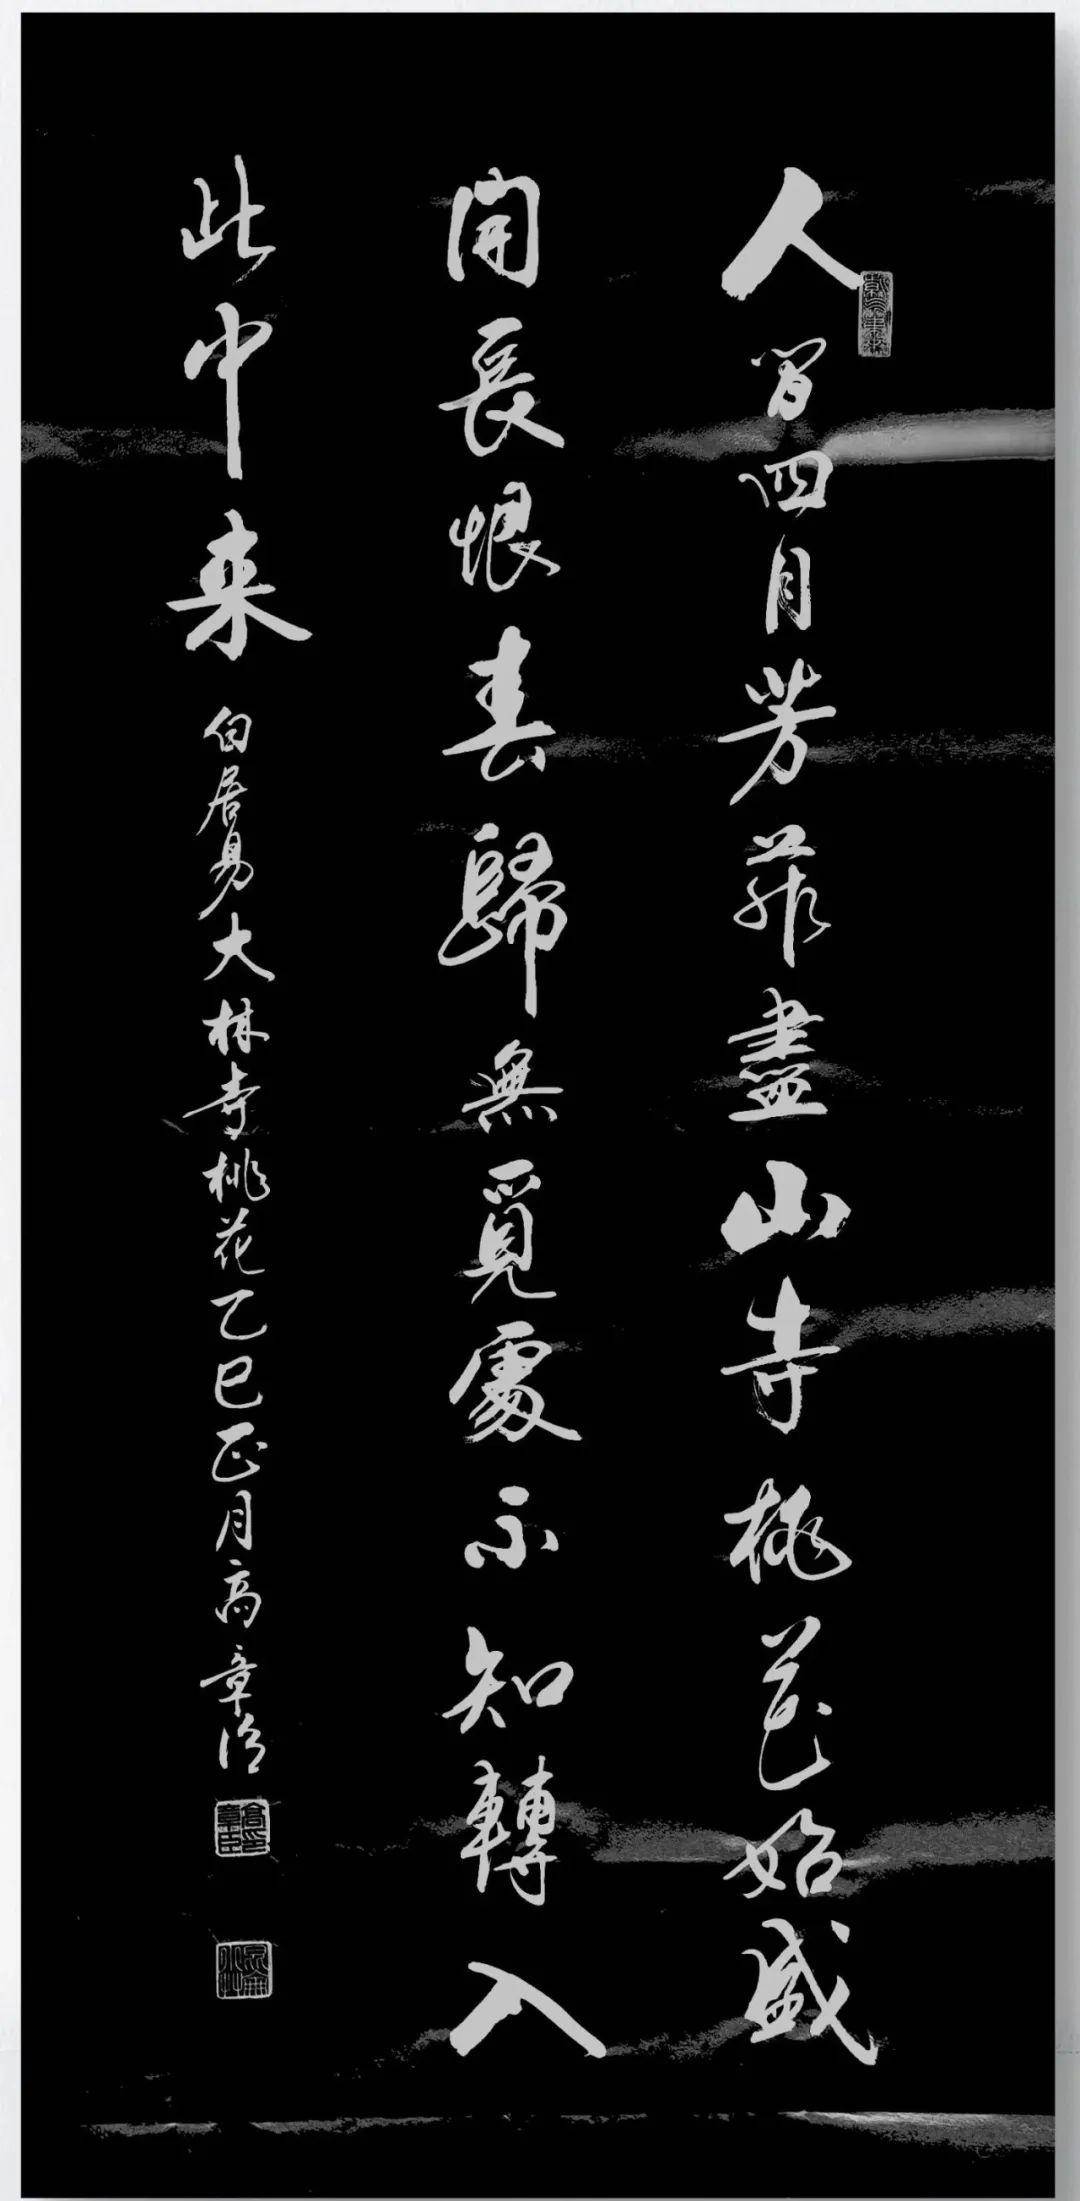 人間四月芳菲盡山寺桃花始盛
開長恨春歸無覓處不知轉入
此中來 白居易大林寺桃花乙巳正月高章